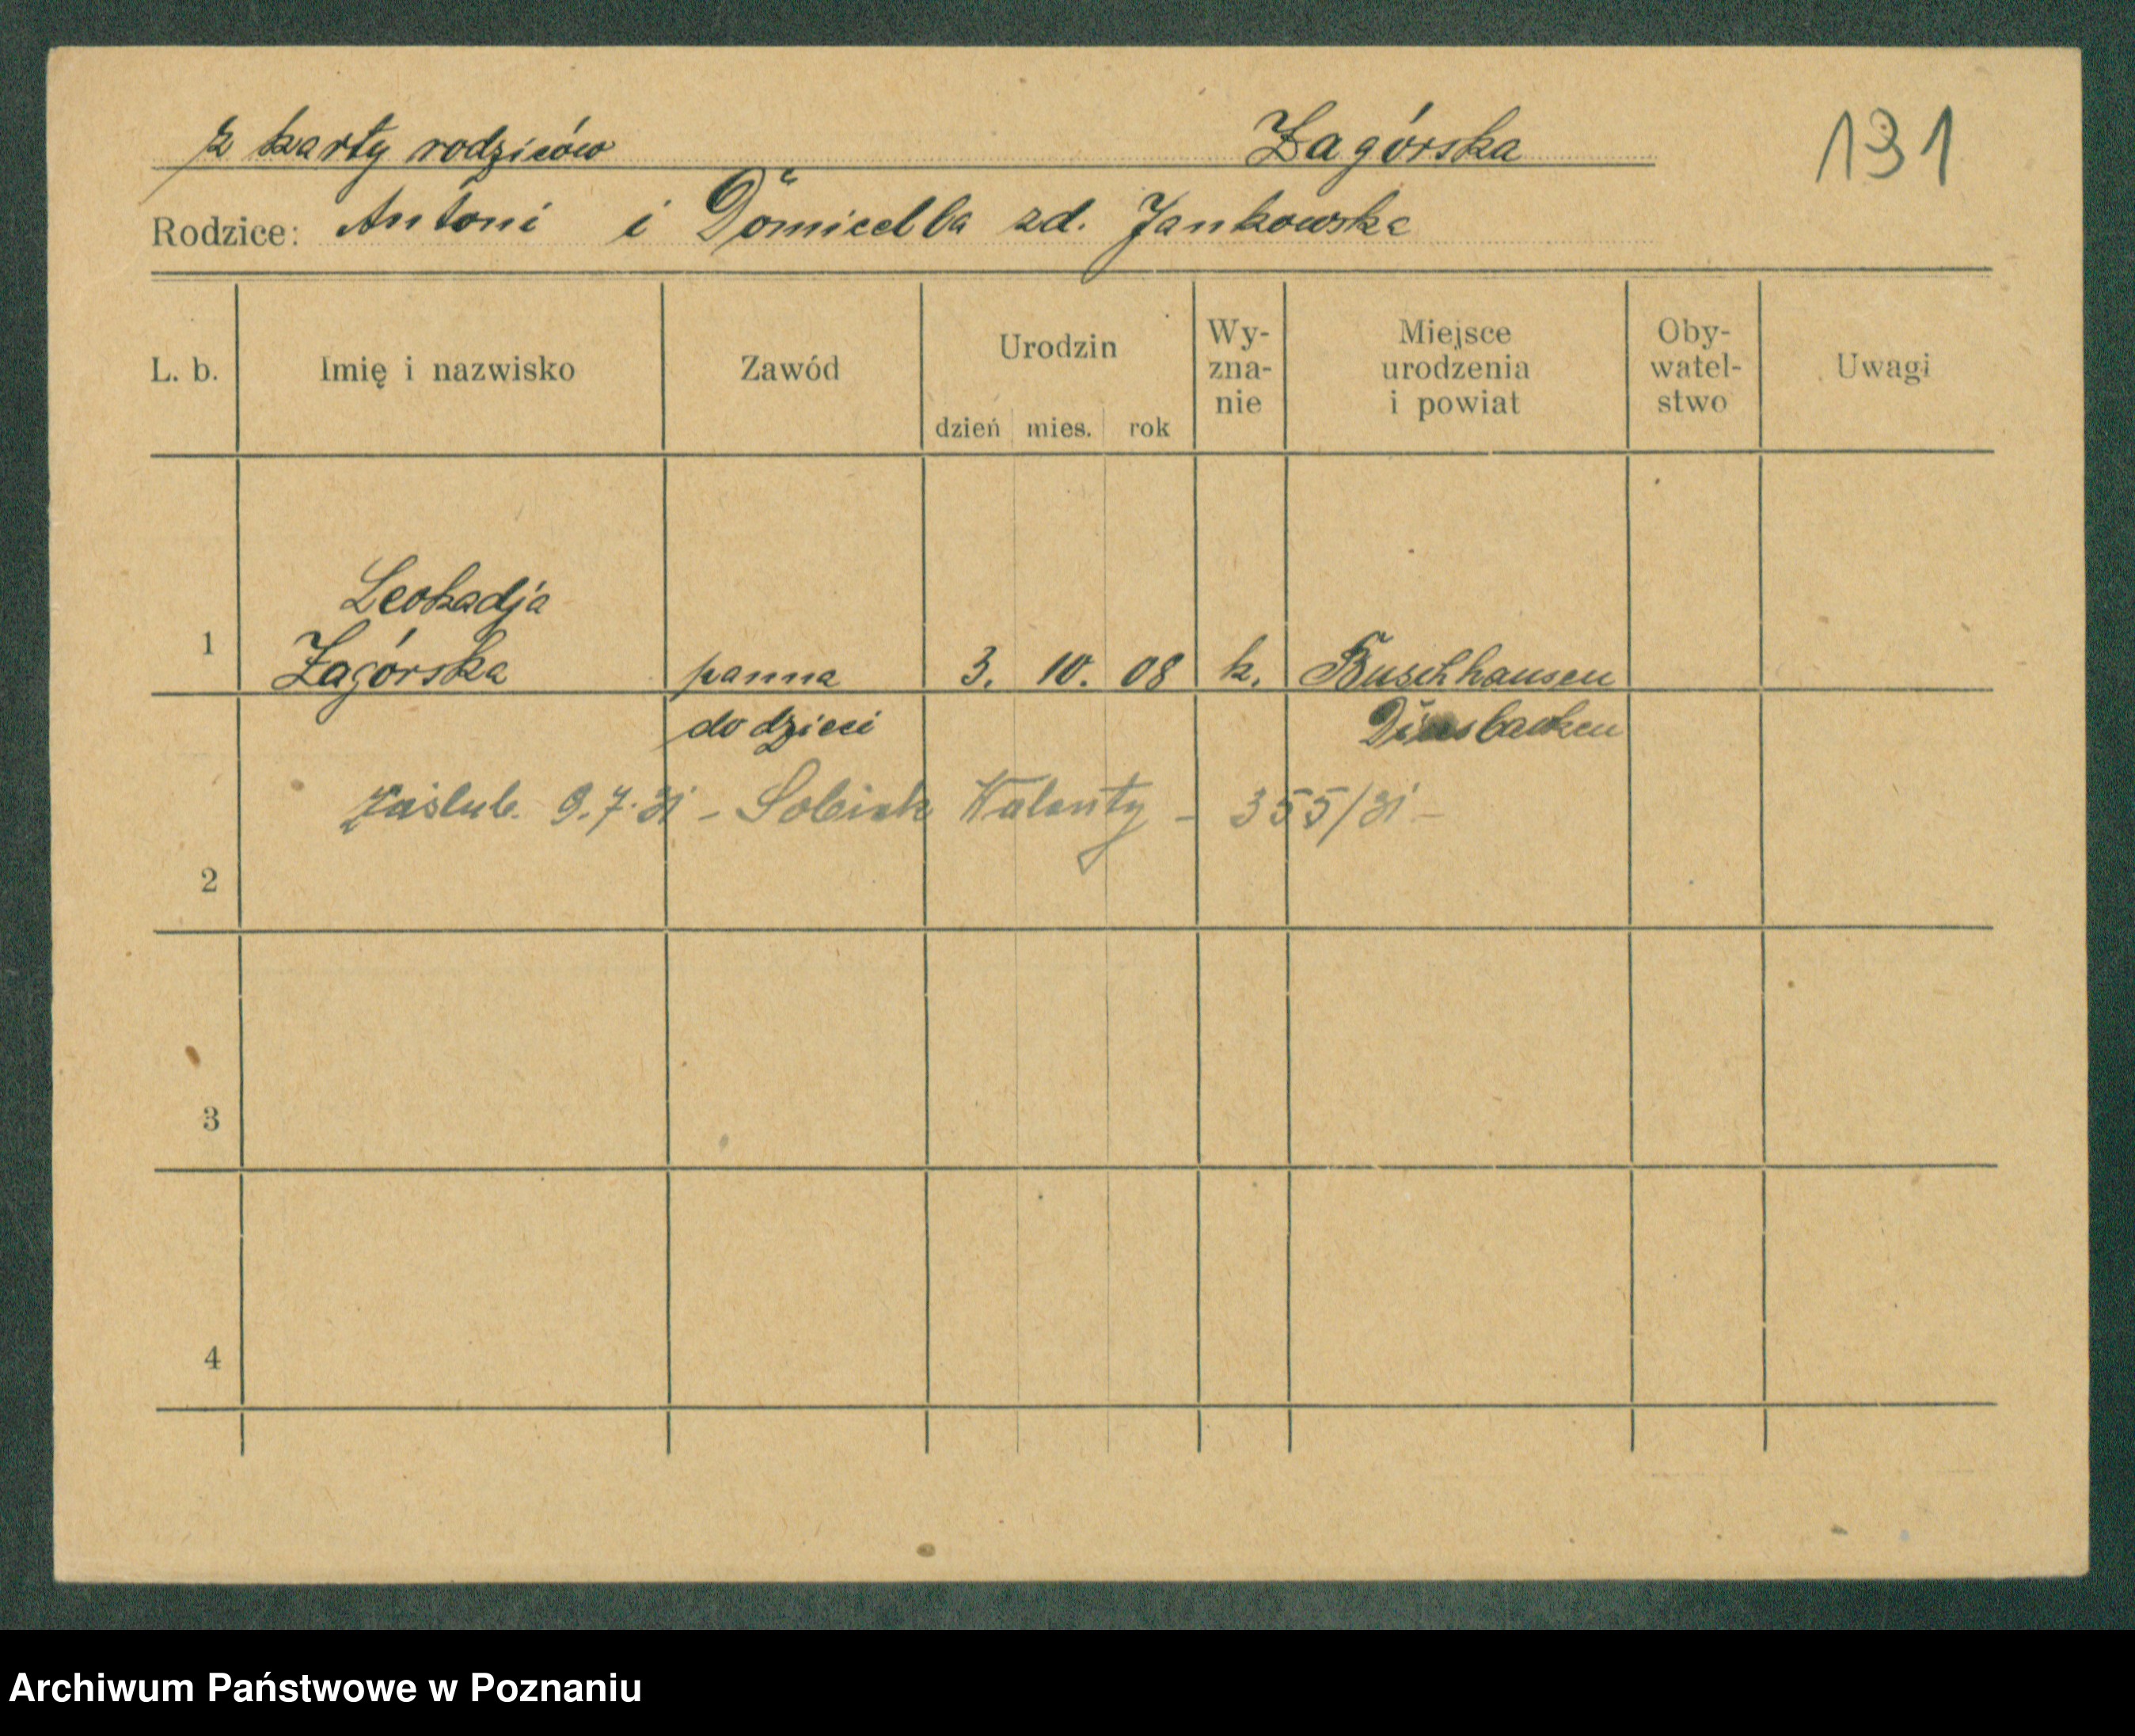 z karty rodziców Zagórska 131
Rodzice: Antoni i Domicella zd. Jankowska
L. b. Imię i nazwisko Zawód Urodzin dzień mies. rok Wy-zna-nie Miejsce urodzenia i powiat Oby-watel-stwo Uwagi
Leokadja
1 Zagórska panna 3. 10. 08 k. Buschhausen
do dzieci Dinslacken
Zaślub. 9.7.31 - Sobiak Walenty - 355/31 -
2
3
4
Archiwum Państwowe w Poznaniu